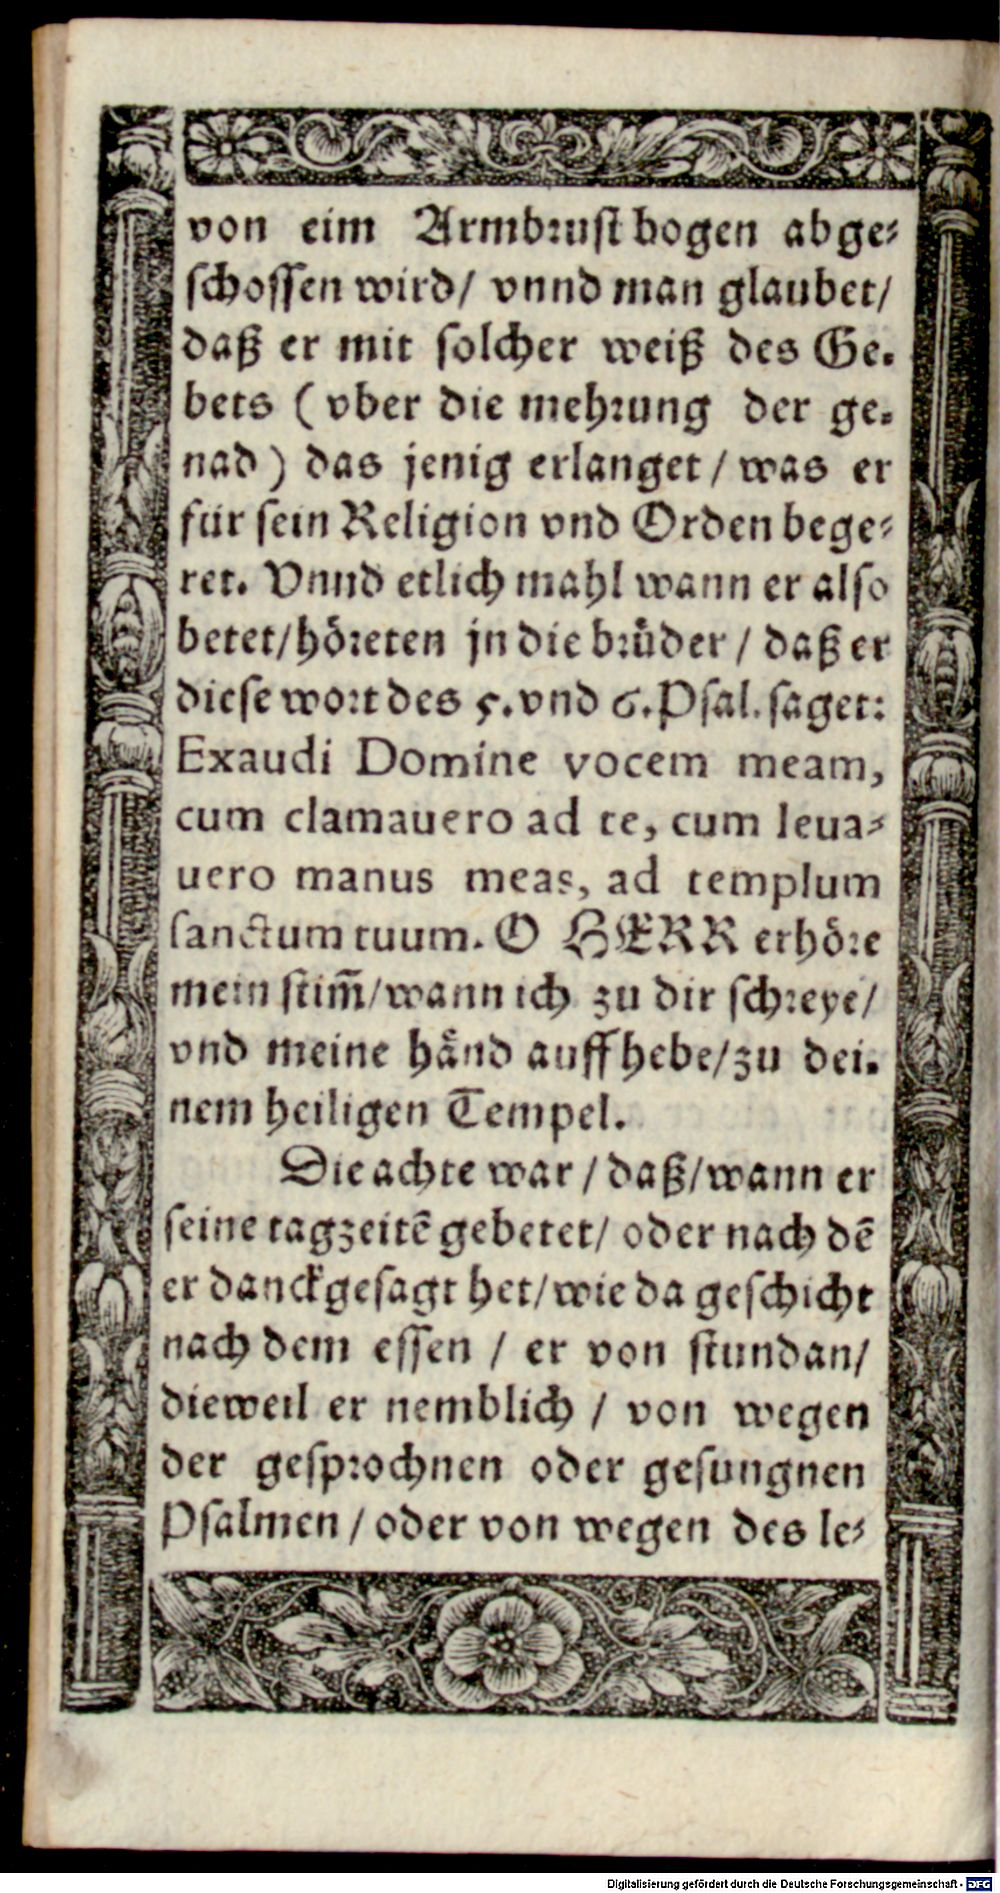 von eim Armbrust bogen abge-
schossen wird/ vnnd man glaubet/
daß er mit solcher weiß des Ge-
bets (vber die mehrung der ge-
nad) das jenig erlanget/ was er
für sein Religion vnd Orden bege-
ret. Vnnd etlich mahl wann er also
betet/ höreten jn die brůder/ daß er
diese wort des 5. vnd 6. Psal. saget:
Exaudi Domine vocem meam,
cum clamauero ad te, cum leua-
uero manus meas, ad templum
sanctum tuum. O HERR erhöre
mein stim̃/ wann ich zu dir schreye/
vnd meine händ auff hebe/ zu dei-
nem heiligen Tempel.
Die achte war/ daß/ wann er
seine tagzeitẽ gebetet/ oder nach dẽ
er danckgesagt het/ wie da geschicht
nach dem essen/ er von stundan/
dieweil er nemblich/ von wegen
der gesprochnen oder gesungnen
Psalmen/ oder von wegen des le-
Digitalisierung gefördert durch die Deutsche Forschungsgemeinschaft - DFG